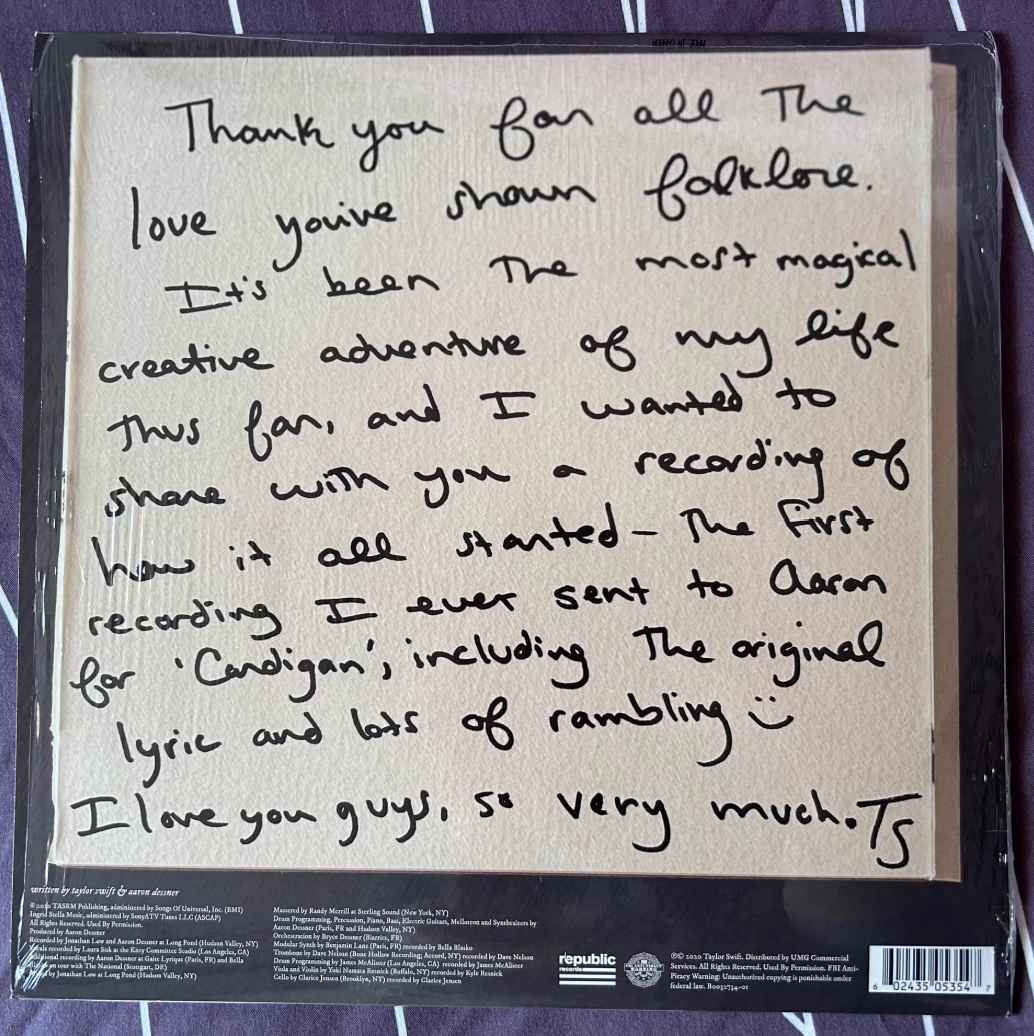 Thank you for all The
love you've shown folklore.
It's been The most magical
creative adventure of my life
thus far, and I wanted to
share with you a recording of
how it all started - The first
recording I ever sent to Aaron
for 'Cardigan', including The original
lyric and lots of rambling :)
I love you guys, so very much. TS
written by taylor swift & aaron dessner
© 2020 TASRM Publishing, administered by Songs Of Universal, Inc. (BMI)
Ingrid Stella Music, administered by Sony/ATV Tunes LLC (ASCAP)
All Rights Reserved. Used By Permission.
Produced by Aaron Dessner
Recorded by Jonathan Low and Aaron Dessner at Long Pond (Hudson Valley, NY)
Vocals recorded by Laura Sisk at the Kitty Committee Studio (Los Angeles, CA)
Additional recording by Aaron Dessner at Gaite Lyrique (Paris, FR) and Bella
on tour with The National (Stuttgart, DE)
by Jonathan Low at Long Pond (Hudson Valley, NY)
Mastered by Randy Merrill at Sterling Sound (New York, NY)
Drum Programming, Percussion, Piano, Bass, Electric Guitars, Mellotron and Synthesizers by
Aaron Dessner (Paris, FR and Hudson Valley, NY)
Orchestration by Bryce Dessner (Biarritz, FR)
Modular Synth by Benjamin Lanz (Paris, FR) recorded by Bella Blasko
Trombone by Dave Nelson (Bone Hollow Recording; Accord, NY) recorded by Dave Nelson
Drum Programming by James McAlister (Los Angeles, CA) recorded by James McAlister
Viola and Violin by Yuki Numata Resnick (Buffalo, NY) recorded by Kyle Resnick
Cello by Clarice Jensen (Brooklyn, NY) recorded by Clarice Jensen
republic
records
℗© 2020 Taylor Swift. Distributed by UMG Commercial
Services. All Rights Reserved. Used By Permission. FBI Anti-
Piracy Warning: Unauthorized copying is punishable under
federal law. B0032734-01
6 02435 05354 7